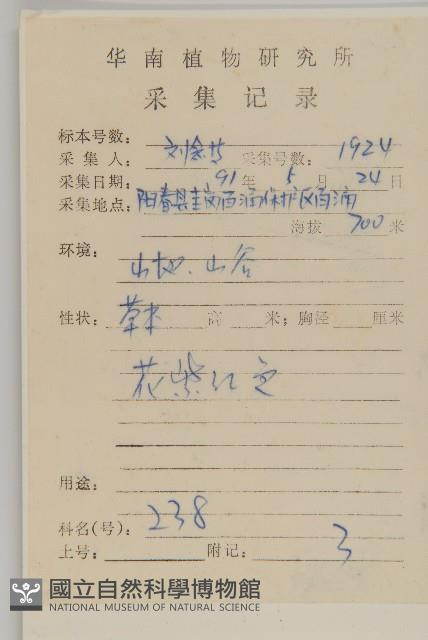 华南植物研究所
采集记录
标本号数:
采集人: 刘念 采集号数: 1924
采集日期: 91年 5月 24日
采集地点: 阳春县 保护区
海拔 700 米
环境:
山地、山谷
性状: 草本 高 米; 胸径 厘米
花紫红色
用途:
科名(号): 238
上号: 附记: 3
國立自然科學博物館
NATIONAL MUSEUM OF NATURAL SCIENCE